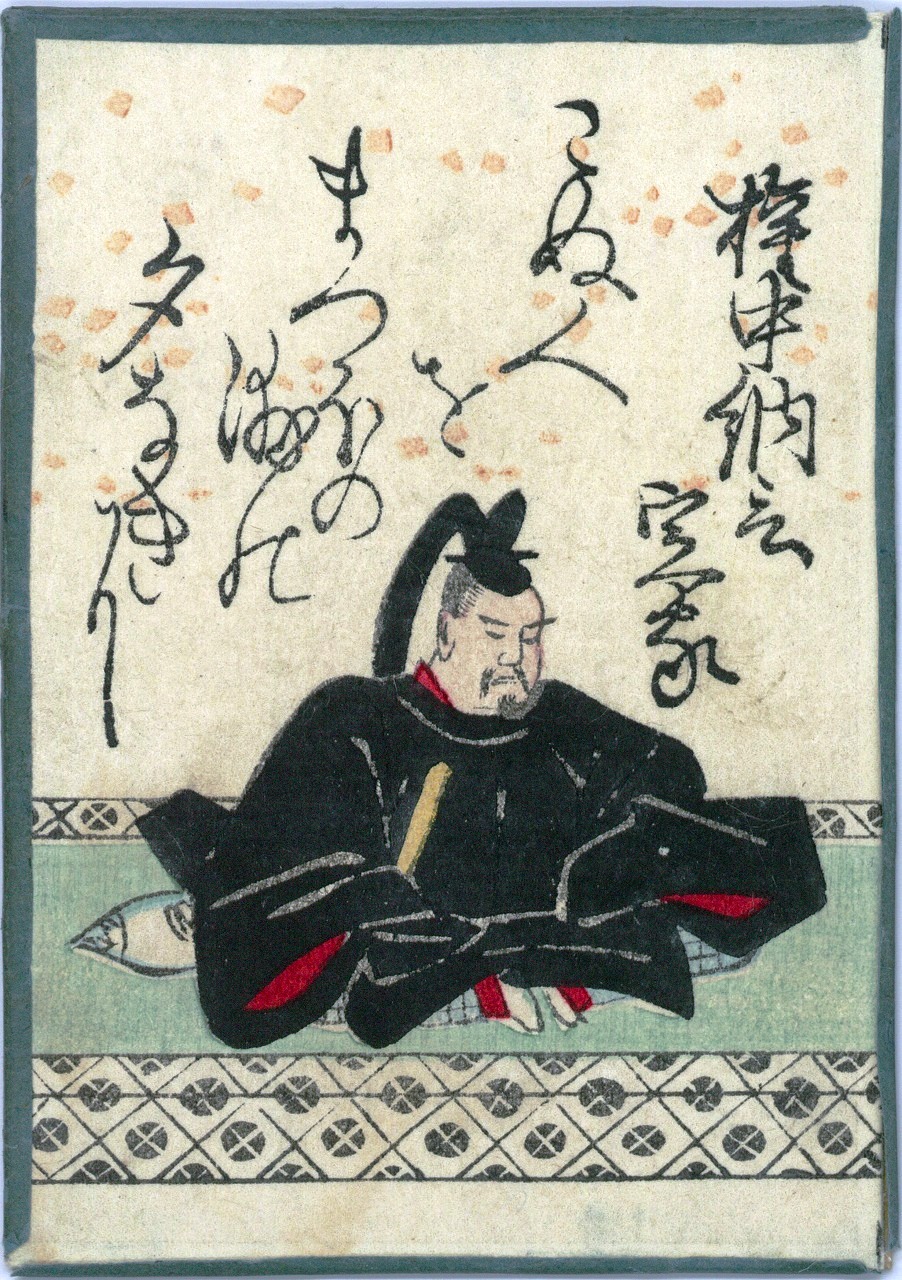 権中納言
定家
こぬ人
を
まつほの
浦の
夕なき
に